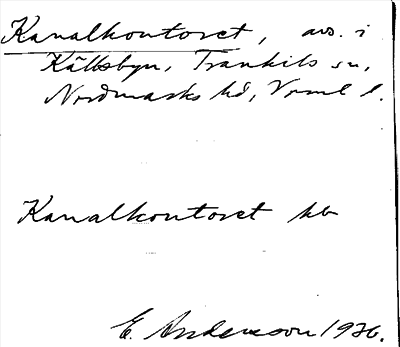 Kanalkontoret, avs. i
Källsbyn, Trankils sn,
Nordmarks hd, Vrml l.
Kanalkontoret hb
E. Andersson 1926.